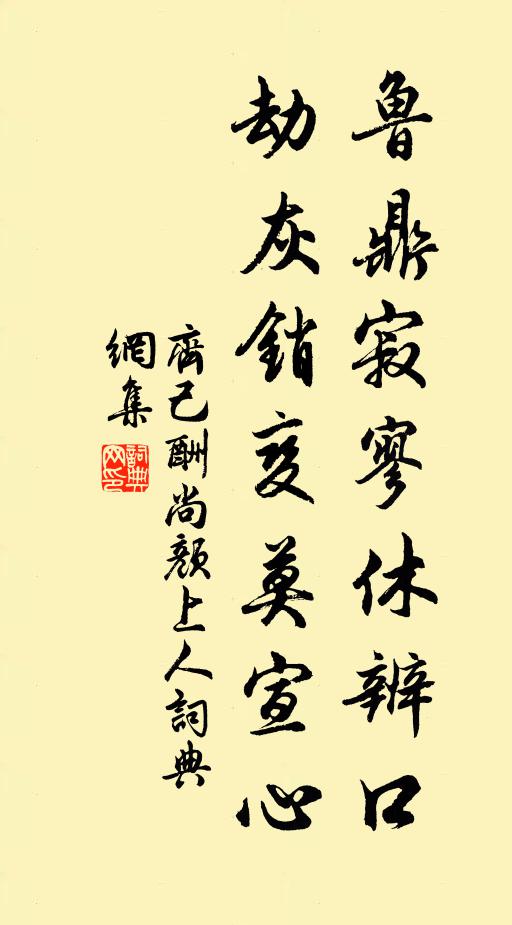 魯鼎寂寥休辨口
劫灰銷變莫宣心
齊己酬尚顏上人詞典
網集
詞典
网印